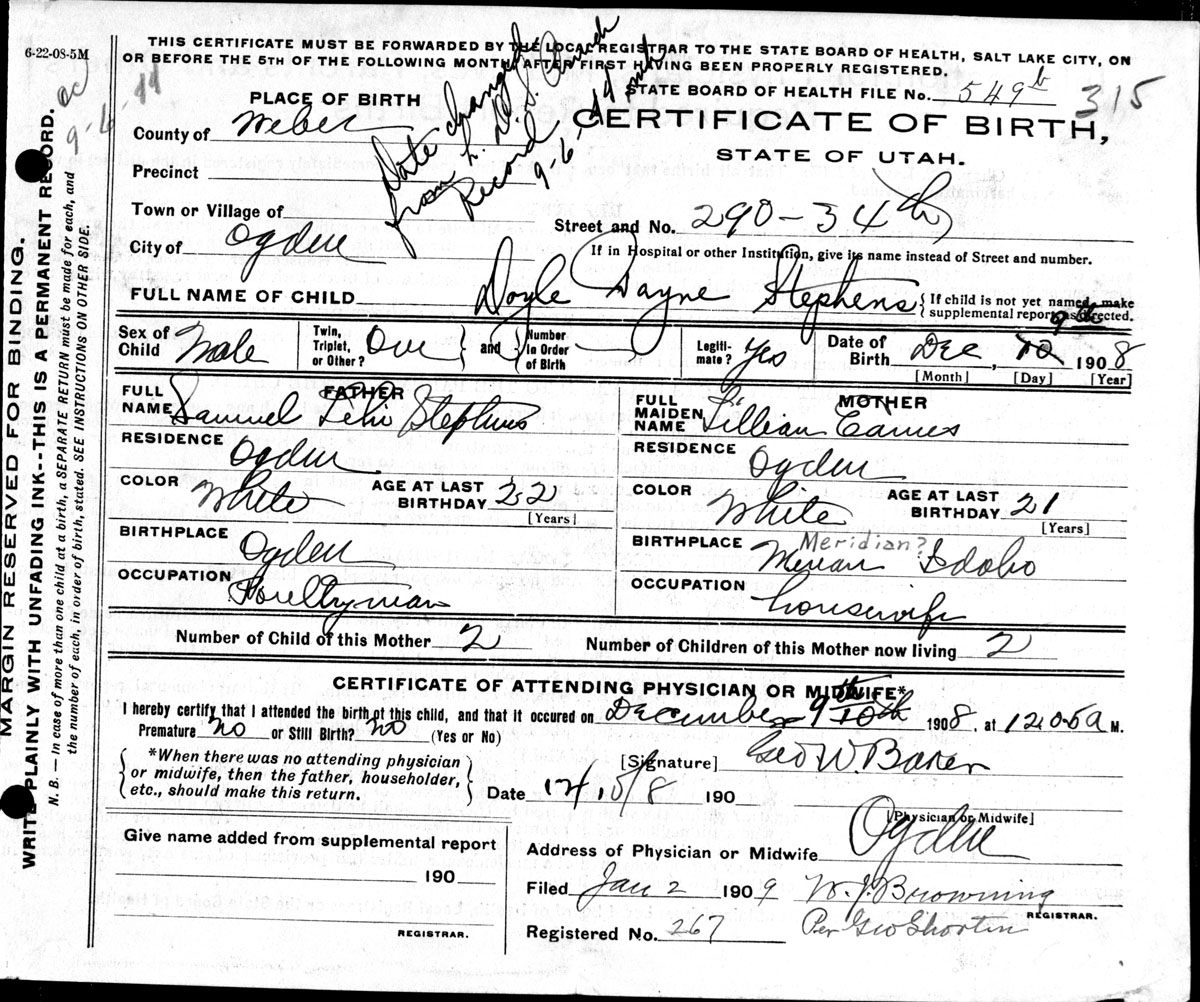 6-22-08-5M
THIS CERTIFICATE MUST BE FORWARDED BY THE LOCAL REGISTRAR TO THE STATE BOARD OF HEALTH, SALT LAKE CITY, ON
OR BEFORE THE 5TH OF THE FOLLOWING MONTH AFTER FIRST HAVING BEEN PROPERLY REGISTERED.
STATE BOARD OF HEALTH FILE No. 549 b 315
PLACE OF BIRTH
CERTIFICATE OF BIRTH,
STATE OF UTAH.
Date changed
from L. D. S. Church
Record
9-6-44
County of Weber
Precinct
Town or Village of
Street and No. 290-34th
City of Ogden
If in Hospital or other Institution, give its name instead of Street and number.
FULL NAME OF CHILD Doyle Dayne Stephens { If child is not yet named, make
supplemental report as directed.
Sex of Child Male Twin, Triplet, or Other? One } and { Number in Order of Birth Legitimate? Yes Date of Birth Dec 10 9th 1908
[Month] [Day] [Year]
FATHER
FULL NAME Samuel Lehi Stephens
RESIDENCE Ogden
COLOR White AGE AT LAST BIRTHDAY 22
[Years]
BIRTHPLACE Ogden
OCCUPATION Poultryman
MOTHER
FULL MAIDEN NAME Lillian Eames
RESIDENCE Ogden
COLOR White AGE AT LAST BIRTHDAY 21
[Years]
Meridian?
BIRTHPLACE Merian Idaho
OCCUPATION housewife
Number of Child of this Mother 2 Number of Children of this Mother now living 2
CERTIFICATE OF ATTENDING PHYSICIAN OR MIDWIFE*
I hereby certify that I attended the birth of this child, and that it occured on December 9th 10th 1908, at 1205a M.
Premature No or Still Birth? No (Yes or No)
*When there was no attending physician
or midwife, then the father, householder,
etc., should make this return.
[Signature] Geo W. Baker
Date 12/10/8 190
[Physician or Midwife]
Address of Physician or Midwife Ogden
Filed Jan 2 1909 W. J. Browning
REGISTRAR.
Registered No. 267 Per Geo Shorten
Give name added from supplemental report
190
REGISTRAR.
MARGIN RESERVED FOR BINDING.
WRITE PLAINLY WITH UNFADING INK--THIS IS A PERMANENT RECORD.
N. B.—In case of more than one child at a birth, a SEPARATE RETURN must be made for each, and
the number of each, in order of birth, stated. SEE INSTRUCTIONS ON OTHER SIDE.
9-6-44